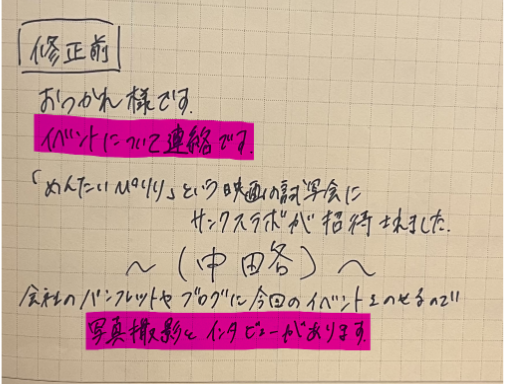 修正前
おつかれ様です.
イベントについて連絡です.
「めんたいぴりり」という映画の試写会に
サンクスラボが招待されました.
～(中田各)～
会社のパンフレットやブログに今回のイベントをのせるので
写真撮影とインタビューがあります.